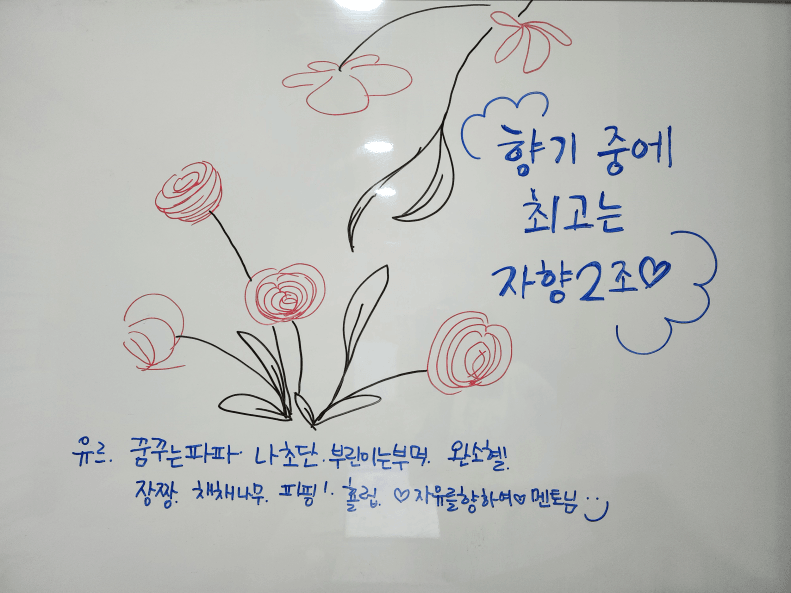 향기 중에
최고는
자향2조♡
유르. 꿈꾸는파파. 나초단. 부린이는부먹. 완소헬!
장짱. 채채나무. 피핑!. 홀럽. ♡자유를향하여♡멘토님